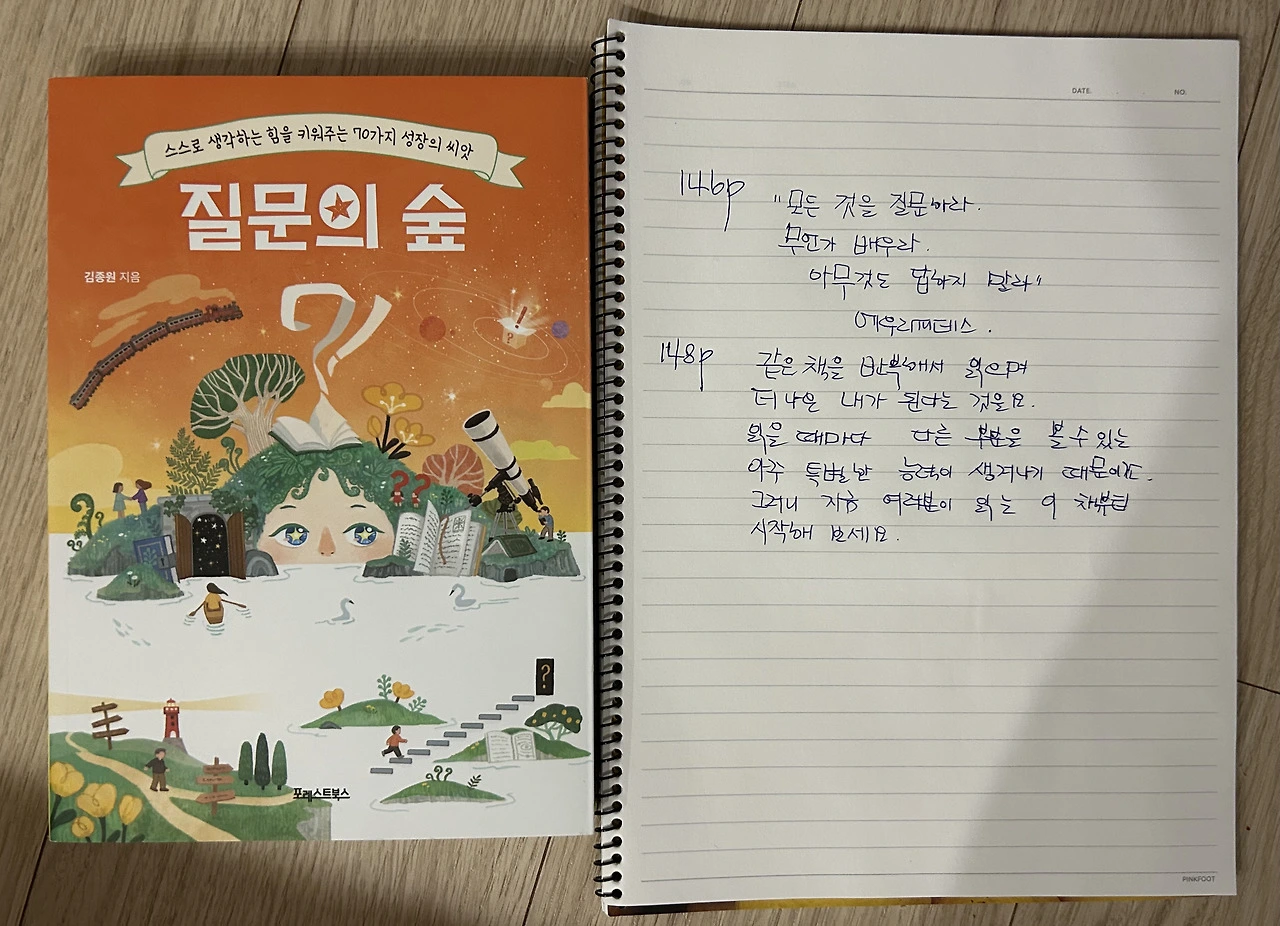 스스로 생각하는 힘을 키워주는 70가지 성장의 씨앗
질문의 숲
김종원 지음
?
!
?
??
?
포레스트북스
DATE.
NO.
146p
"모든 것을 질문하라.
무언가 배우라.
아무것도 답하지 말라"
에우리피데스.
148p
같은 책을 반복해서 읽으며
더 나은 내가 된다는 것을요.
읽을 때마다 다른 부분을 볼 수 있는
아주 특별한 능력이 생겨나기 때문이죠.
그러니 지금 여러분이 읽는 이 책부터
시작해 보세요.
PINKFOOT